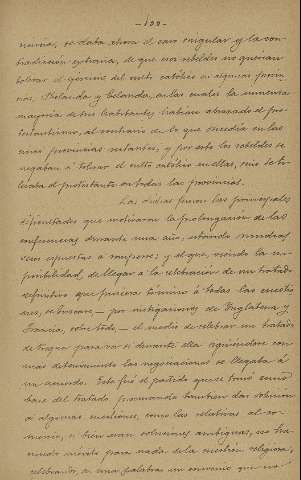 -199-
se daba ahora el caso singular y la con-
tradicción extraña, de que esos rebeldes no querían
tolerar el ejercicio del culto católico en algunas provin-
cias, Holanda y Zelanda, en las cuales la inmensa
mayoría de sus habitantes habían abrazado el pro-
testantismo, al contrario de lo que sucedía en las
provincias restantes, y por esto los rebeldes se
negaban á tolerar el culto católico en ellas,
el protestante en todas las provincias.
Las dichas fueron las principales
dificultades que motivaron la prolongación de las
conferencias durante una año, estando muchas
veces expuestas a romperse; y al que, viendo la im-
posibilidad de llegar á la celebración de un tratado
definitivo que pusiera término á todas las cuestio-
nes, se buscara, - por instigaciones de Inglaterra y
Francia, sobre todo, - el medio de celebrar un tratado
de tregua para ver si durante ella siguiéndose con
mas detenimiento las negociaciones se llegaba á
un acuerdo. Este fué el partido que se tomó como
base del tratado procurando también dar solución
á algunas cuestiones, como las relativas al co-
mercio, si bien eran soluciones ambiguas, no tra-
tando para nada de la cuestión religiosa,
celebrando, en una palabra un convenio que no